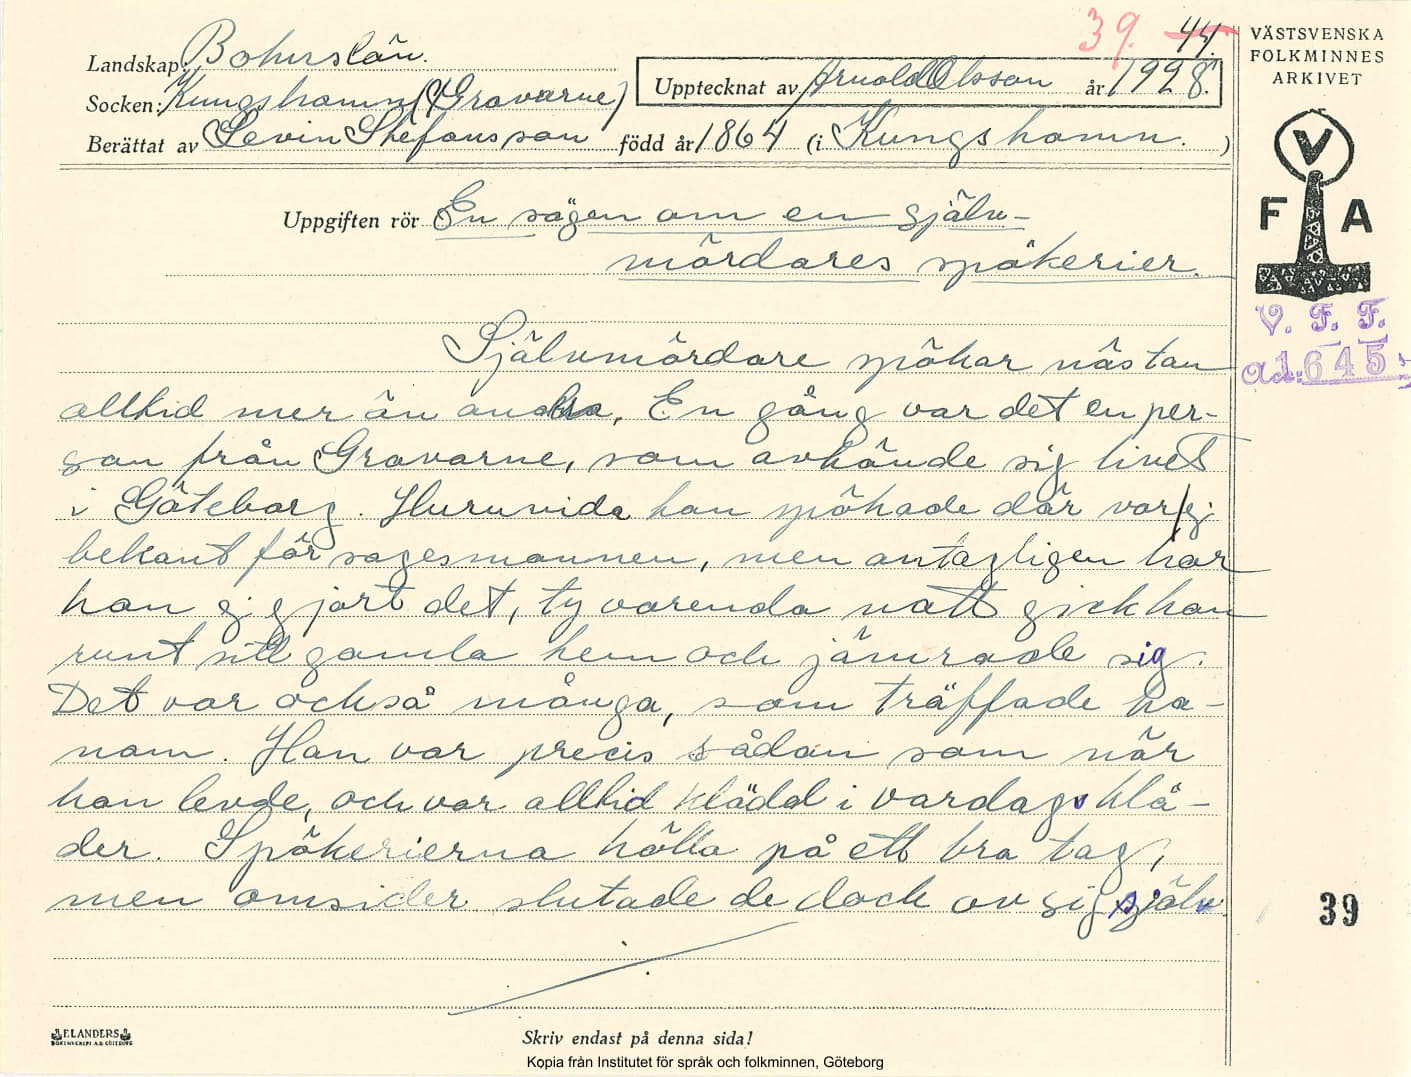 39. 44.
Landskap: Bohuslän.
Socken: Kungshamn (Gravarne)
Upptecknat av Arnold Olsson år 1928.
Berättat av Levin Stefansson född år 1864 (i Kungshamn. )
Uppgiften rör En sägen om en själv-
mördares spökerier.
Självmördare spökar nästan
alltid mer än andra. En gång var det en per-
son från Gravarne, som avhände sig livet
i Göteborg. Huruvida han spökade där var ej
bekant för sagesmannen, men antagligen har
han ej gjort det, ty varenda natt gick han
runt sitt gamla hem och jämrade sig.
Det var också många, som träffade ho-
nom. Han var precis sådan som när
han levde, och var alltid klädd i vardagsklä-
der. Spökerierna höllo på ett bra tag,
men omsider slutade de dock av sig själv
VÄSTSVENSKA
FOLKMINNES
ARKIVET
V
F A
V. F. F.
Acc. 1645
39
ELANDERS
BOKTRYCKERI A.B. GÖTEBORG
Skriv endast på denna sida!
Kopia från Institutet för språk och folkminnen, Göteborg